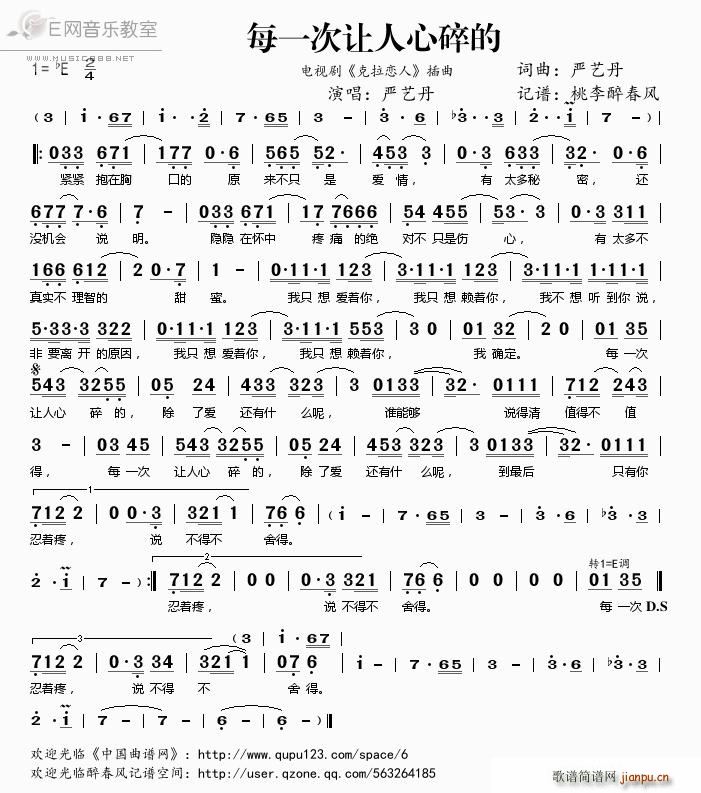 E网音乐教室
www.music988.net
每一次让人心碎的
1=♭E 2/4
电视剧《克拉恋人》插曲
词曲：严艺丹
演唱：严艺丹
记谱：桃李醉春风
(3 | i·67 | i··2 | 7·65 | 3 - | 3·6 | ♭3··3 | 2··i | 7 - )
‖: 033 671 | 177 0·6 | 565 52· | 453 3 | 0·3 633 | 32· 0·6 |
紧紧 抱在胸 口的 原 来不只 是 爱 情， 有 太多秘 密， 还
677 7·6 | 7 - | 033 671 | 17 7666 | 54 455 | 53· 3 | 0·3 311 |
没机会 说 明。 隐隐 在怀中 疼 痛 的绝 对不 只是伤 心， 有 太多不
166 612 | 2 0·7 | 1 - | 0·11·1 123 | 3·11·1 123 | 3·11·1 323 |
真实不 理智的 甜 蜜。 我只 想 爱着你， 我只 想 赖着你， 我不 想 听到你 说，
5·33·3 322 | 0·11·1 123 | 3·11·1 553 | 3 0 | 01 32 | 2 0 | 01 35 |
非 要离 开 的原因， 我只 想 爱着你， 我只 想 赖着你， 我 确定。 每 一次
543 3255 | 05 24 | 433 323 | 3 0133 | 32· 0111 | 712 243 |
让人心 碎 的， 除 了爱 还有什 么呢， 谁能够 说得清 值得不 值
3 - | 03 45 | 543 3255 | 05 24 | 453 323 | 3 0133 | 32· 0111 |
得， 每 一次 让人心 碎 的， 除 了爱 还有什 么呢， 到最后 只有你
1
712 2 | 0 0·3 | 2321 1 | 76 6 | (i - | 7·65 | 3 - | 3·6 | ♭3·3 |
忍着疼， 说 不得不 舍得。
2
转1=E调
2·i | 7 - ) :‖ 712 2 | 0 0 | 0·3 321 | 76 6 | 0 0 | 01 35 ‖
忍着疼， 说 不得不 舍得。 每 一次 D.S
3
(3 | i·67 |
712 2 | 0·3 34 | 321 1 | 076 6 | i - | 7·65 | 3 - | 3·6 | ♭3·3 |
忍着疼， 说 不得 不 舍 得。
2·i | 7 - | 6 - | 6 - | i - )‖
欢迎光临《中国曲谱网》：http://www.qupu123.com/space/6
欢迎光临醉春风记谱空间：http://user.qzone.qq.com/563264185
歌谱简谱网 jianpu.cn